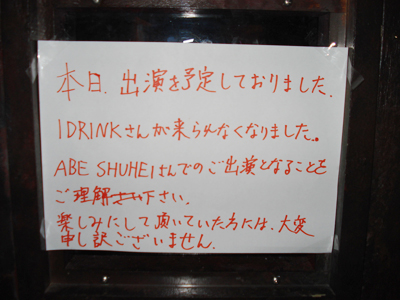 本日、出演を予定しておりました、
IDRINKさんが来られなくなりました。
ABE SHUHEIさんでのご出演となることを
ご理解下さい。
楽しみにして頂いていた方には、大変
申し訳ございません。